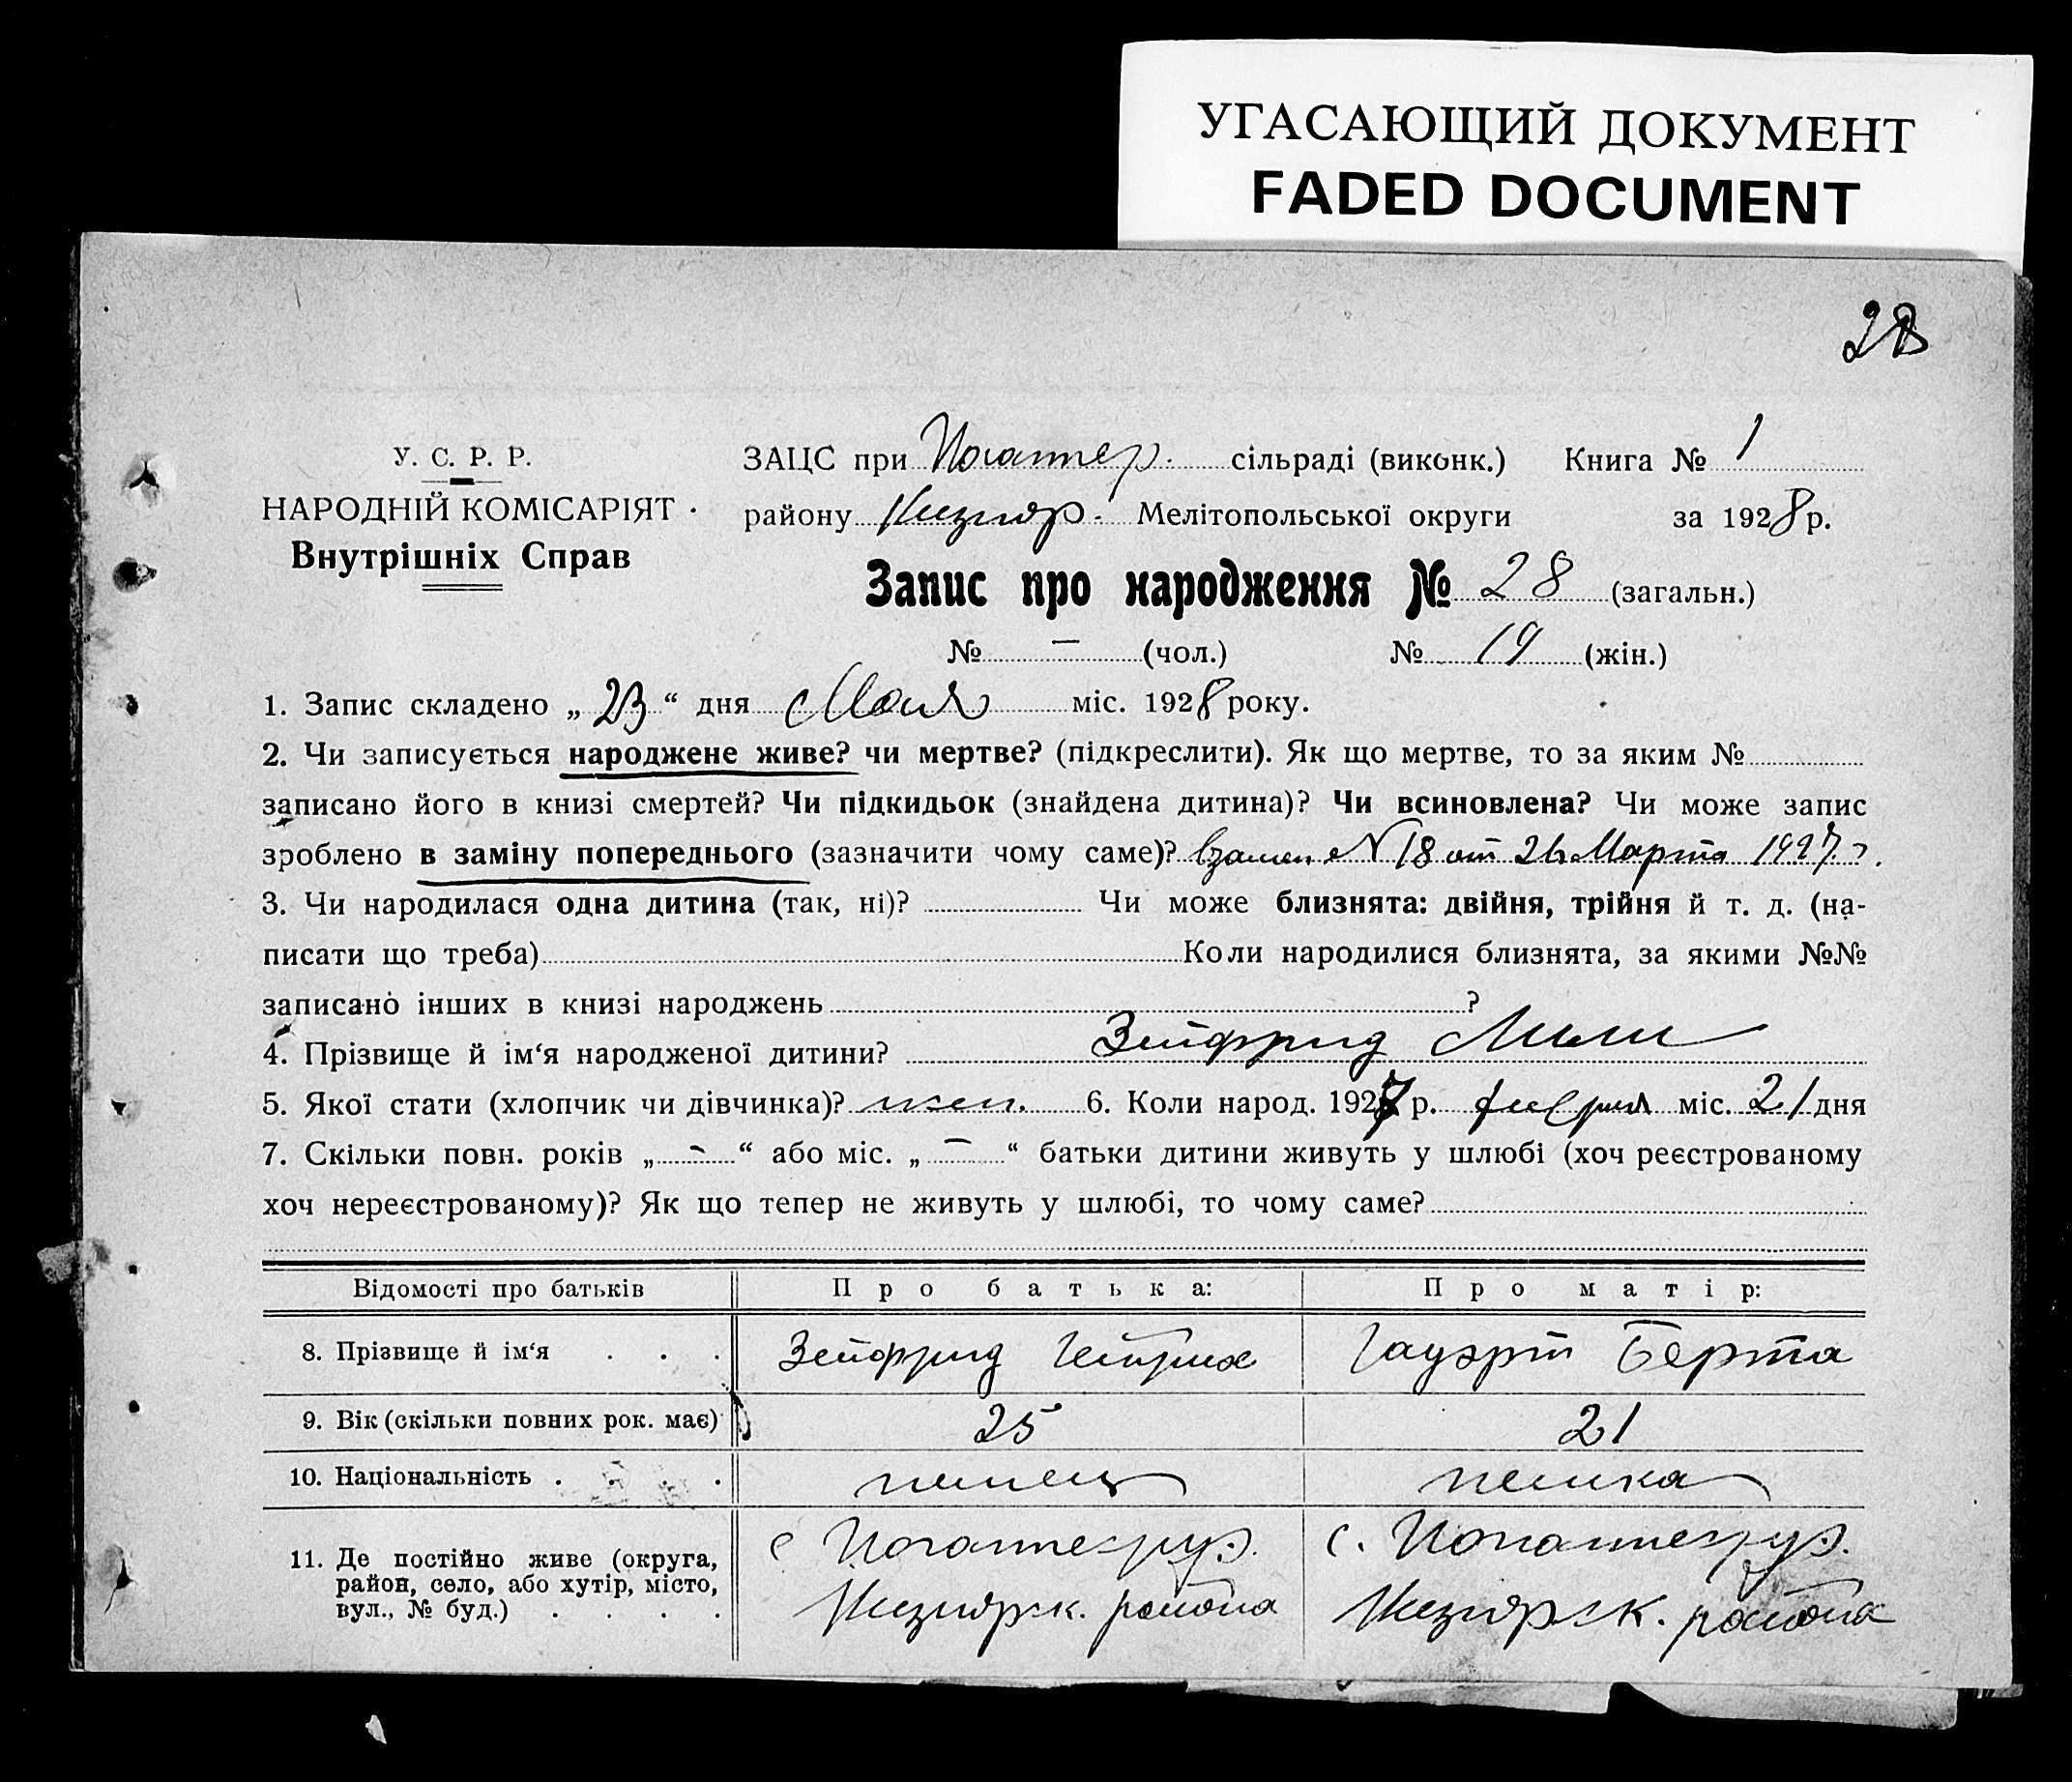 УГАСАЮЩИЙ ДОКУМЕНТ
FADED DOCUMENT
28
У. С. Р. Р.
НАРОДНІЙ КОМІСАРІЯТ
Внутрішніх Справ
ЗАЦС при Иоганнер. сільраді (виконк.) Книга № 1
району Кизияр. Мелітопольської округи за 1928 р.
Запис про народження № 28 (загальн.)
№ — (чол.) № 19 (жін.)
1. Запис складено „ 23 “ дня Мая міс. 1928 року.
2. Чи записується народжене живе? чи мертве? (підкреслити). Як що мертве, то за яким №
записано його в книзі смертей? Чи підкидьок (знайдена дитина)? Чи всиновлена? Чи може запис
зроблено в заміну попереднього (зазначити чому саме)? взамен N 18 от Марта 1927 г.
3. Чи народилася одна дитина (так, ні)? Чи може близнята: двійня, трійня й т. д. (на-
писати що треба) Коли народилися близнята, за якими №№
записано інших в книзі народжень ?
4. Прізвище й ім‘я народженої дитини? Зейфрид Лили
5. Якої стати (хлопчик чи дівчинка)? жен. 6. Коли народ. 1927 р. февраля міс. 21 дня
7. Скільки повн. років „ — “ або міс. „ — “ батьки дитини живуть у шлюбі (хоч реєстрованому
хоч нереєстрованому)? Як що тепер не живуть у шлюбі, то чому саме?
Відомості про батьків Про батька: Про матір:
8. Прізвище й ім‘я . . . Зейфрид Гейнрих Гауэрт Берта
9. Вік (скільки повних рок. має) 25 21
10. Національність . . . . немец немка
11. Де постійно живе (округа, район, село, або хутір, місто, вул., № буд.) . . . .
с Иоганнесруэ. с. Иоганнесруэ.
Кизиярск. района Кизиярск. района